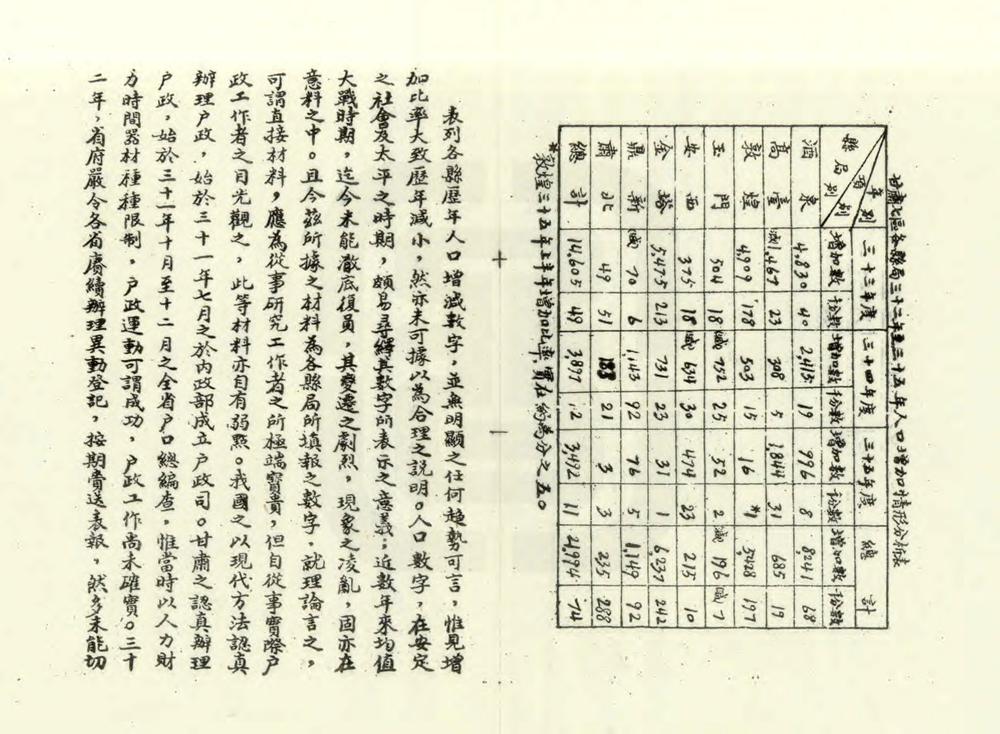 甘肅七區各縣局三十三年至三十五年人口增加情形分析表
縣局別 年別 項別 三十三年度 三十四年度 三十五年度 總計
增加數 千份數 增加數 千份數 增加數 千份數 增加數 千份數
酒泉 4,830 40 2,415 19 996 8 8,241 68
高臺 減1,467 23 308 5 1,844 31 685 19
敦煌 4,909 178 503 15 16 *1 5,428 197
玉門 504 18 減752 25 52 2 減196 減7
安西 375 18 減634 30 474 23 215 10
金塔 5,475 213 731 23 31 1 6,237 242
鼎新 減70 6 1,143 92 76 5 1,149 92
肅北 49 51 183 21 3 3 235 288
總計 14,605 49 3,897 12 3,492 11 21,994 74
*敦煌三十五年上半年增加比率,實在約為分之五。
表列各縣歷年人口增減數字,並無明顯之任何趨勢可言,惟見增
加比率大致歷年減小,然亦未可據以為合理之說明。人口數字,在安定
之社會及太平之時期,頗易尋繹其數字所表示之意義;近數年來均值
大戰時期,迄今未能澈底復員,其變遷之劇烈,現象之凌亂,固亦在
意料之中。且今茲所據之材料為各縣局所填報之數字,就理論言之,
可謂直接材料,應為從事研究工作者之所極端寶貴,但自從事實際戶
政工作者之目光觀之,此等材料亦自有弱點。我國之以現代方法認真
辦理戶政,始於三十一年七月之於內政部成立戶政司。甘肅之認真辦理
戶政,始於三十一年十月至十二月之全省戶口總編查,惟當時以人力財
力時間器材種種限制,戶政運動可謂成功,戶政工作尚未確實。三十
二年,省府嚴令各省賡續辦理異動登記,按期賫送表報,然多未能切